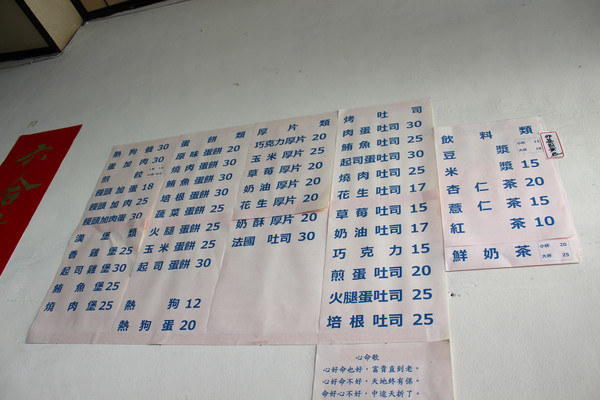 六
熱狗餐 30
蛋加肉 30
煎餃
饅頭加蛋 18
饅頭加肉 25
饅頭加肉蛋 30
漢堡類
香雞堡 25
起司雞堡 30
鮪魚堡 25
燒肉堡 25
蛋餅類
原味蛋餅 20
燒肉蛋餅 30
鮪魚蛋餅 30
培根蛋餅 30
蔬菜蛋餅 25
火腿蛋餅 25
玉米蛋餅 25
起司蛋餅 30
熱狗 12
熱狗蛋 20
厚片類
巧克力厚片 20
玉米厚片 25
草莓厚片 20
奶油厚片 20
花生厚片 20
奶酥厚片 20
法國吐司 30
烤吐司
肉蛋吐司 30
鮪魚吐司 25
起司蛋吐司 30
燒肉吐司 25
花生吐司 17
草莓吐司 15
奶油吐司 17
巧克力 15
煎蛋吐司 20
火腿蛋吐司 25
培根吐司 25
飲料類
豆漿 小杯
大杯
米漿 15
杏仁茶 20
薏仁茶 15
紅茶 10
鮮奶茶 小杯 20
大杯 25
心命歌
心好命也好，富貴直到老。
心好命不好，天地終有保。
命好心不好，中途夭折了。